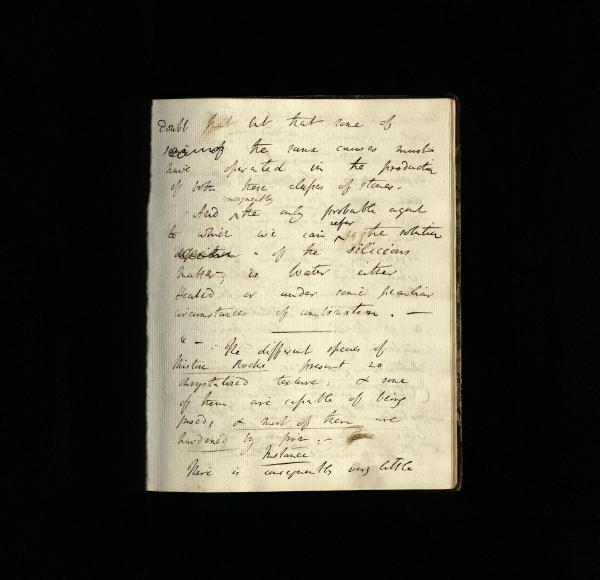 doubt but that some of
the same causes must
have operated in the production
of both these classes of stones.
consequently
- And ^ the only probable agent
refer
to which we can ^ the solution
of the silicious
matter, is Water either
Heated or under some peculiar
circumstances of combination. —
"— The different species of
Rocks present no
chrystalized texture; & some
of them are capable of being
fused, & most of them are
hardened by fire; —
Instance
There is consequently very little